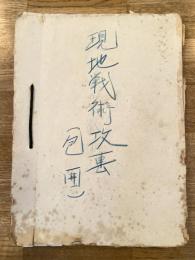 現地戦術攻裏
(包囲)